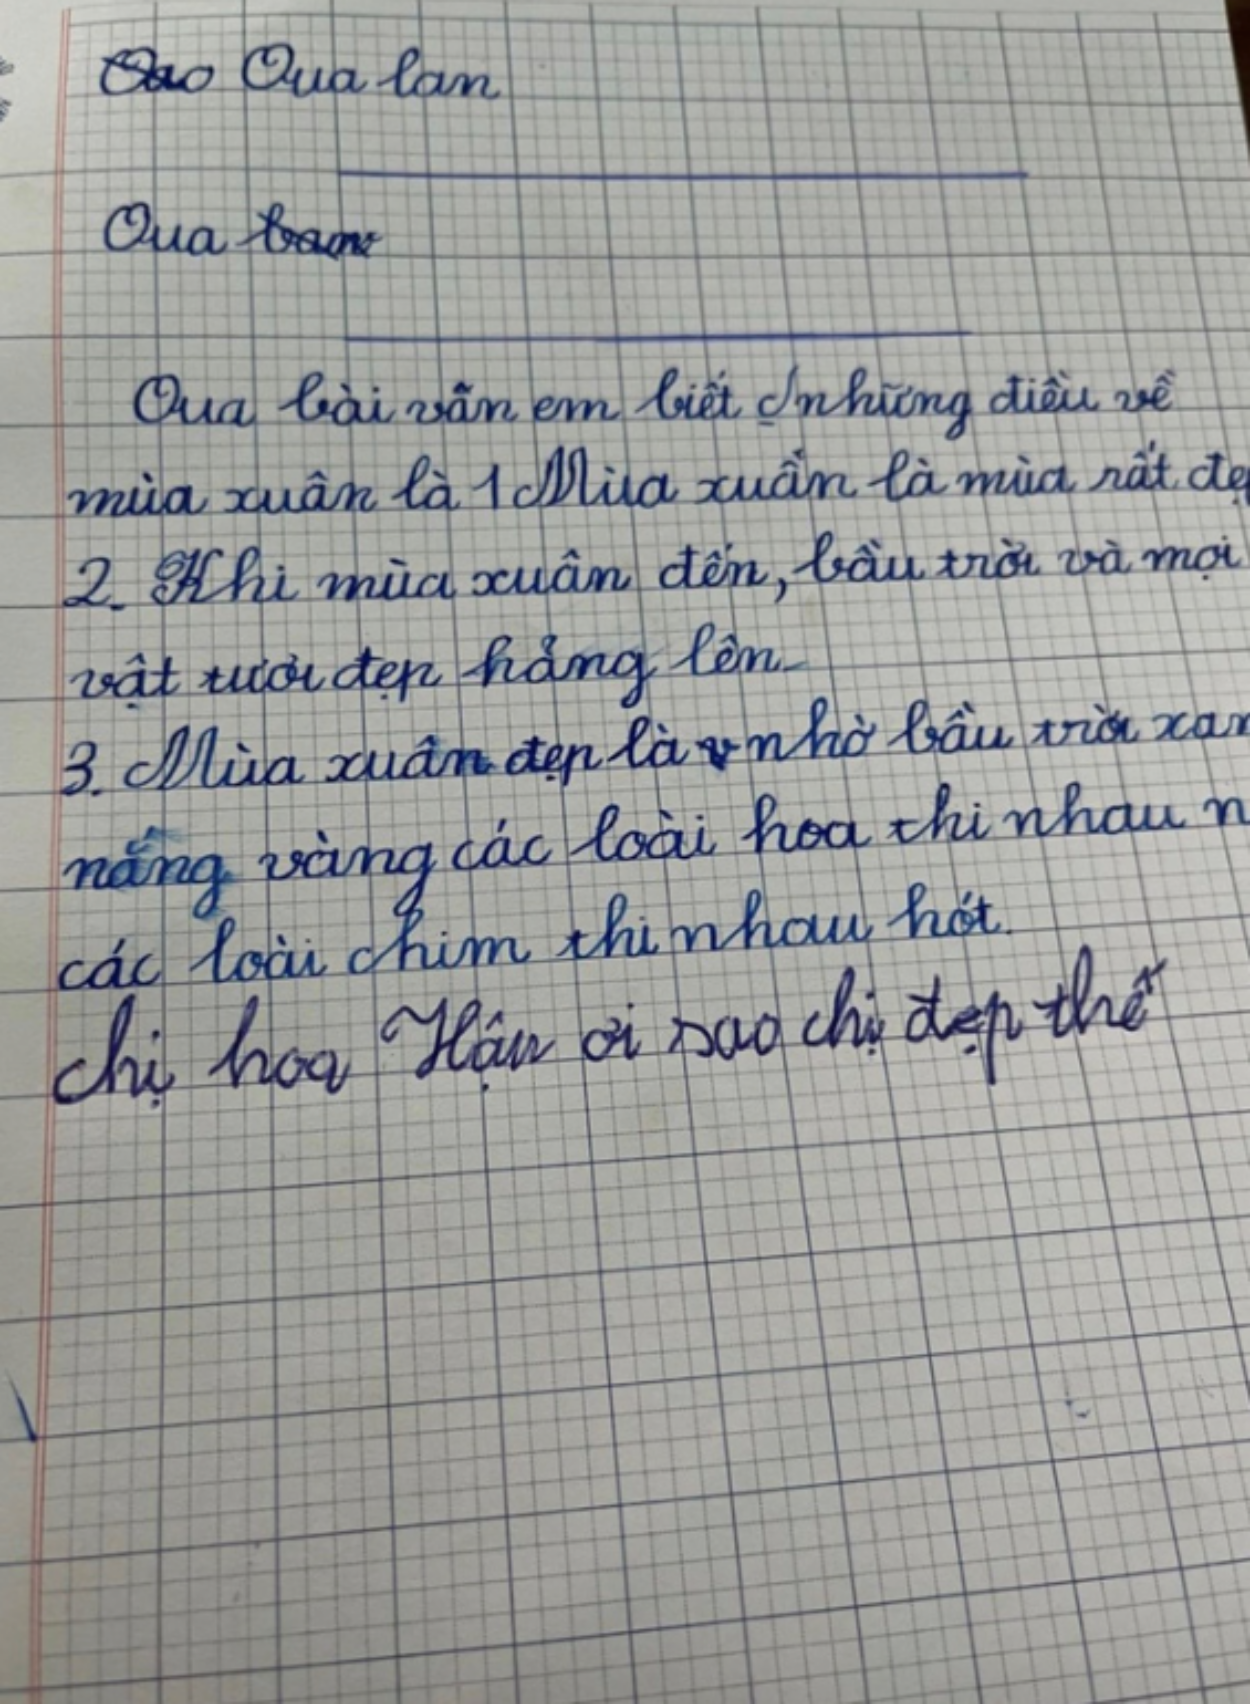 Qua lan
Qua
Qua bài văn em biết những điều về
mùa xuân là 1 Mùa xuân là mùa rất
2. Khi mùa xuân đến, bầu trời và mọi
vật tươi đẹp hẳng lên
3. Mùa xuân đẹp là nhờ bầu trời
nắng vàng các loài hoa thi nhau
các loài chim thi nhau hót.
chị hoa Hậu ơi sao chị đẹp thế